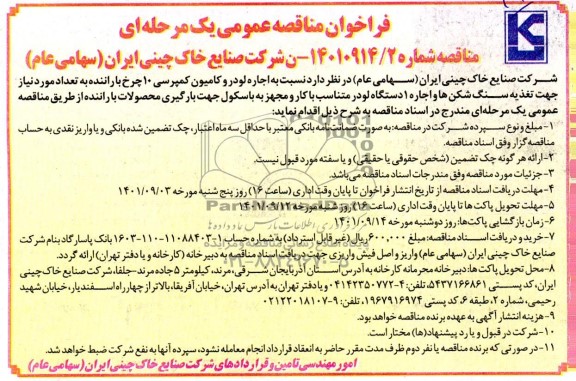 فراخوان مناقصه عمومی یک مرحله‌ای
مناقصه شماره ۱۴۰۱۰۹۱۴/۲-ن شرکت صنایع خاک چینی ایران (سهامی عام)
شرکت صنایع خاک چینی ایران (سهامی عام) در نظر دارد نسبت به اجاره لودر و کامیون کمپرسی ۱۰ چرخ با راننده به تعداد مورد نیاز
جهت تغذیه سنگ شکن ها و اجاره ۱ دستگاه لودر متناسب با کار و مجهز به باسکول جهت بارگیری محصولات با راننده از طریق مناقصه
عمومی یک مرحله‌ای مندرج در اسناد مناقصه به شرح ذیل اقدام نماید:
۱- مبلغ و نوع سپرده شرکت در مناقصه: به صورت ضمانت نامه بانکی معتبر با حداقل سه ماه اعتبار، چک تضمین شده بانکی و یا واریز نقدی به حساب
مناقصه گزار وفق اسناد مناقصه.
۲- ارائه هر گونه چک تضمین (شخص حقوقی یا حقیقی) و یا سفته مورد قبول نیست.
۳- جزئیات مورد مناقصه وفق مندرجات اسناد مناقصه می‌باشد.
۴- مهلت دریافت اسناد مناقصه از تاریخ انتشار فراخوان تا پایان وقت اداری (ساعت ۱۶) روز پنج شنبه مورخه ۱۴۰۱/۰۹/۰۳
۵- مهلت تحویل پاکت ها تا پایان وقت اداری (ساعت ۱۶) روز شنبه مورخه ۱۴۰۱/۰۹/۱۲
۶- زمان بازگشایی پاکت‌ها: روز دوشنبه مورخه ۱۴۰۱/۰۹/۱۴
۷- خرید و دریافت اسناد مناقصه: مبلغ ۶۰۰,۰۰۰ ریال (غیر قابل استرداد) به شماره حساب ۱-۱۱۰۸۸۴۰۳-۱۱۰-۱۶۰۳ بانک پاسارگاد بنام شرکت
صنایع خاک چینی ایران (سهامی عام) واریز و اصل فیش واریزی جهت دریافت اسناد مناقصه به دبیرخانه (کارخانه و یا دفتر تهران) ارائه گردد.
۸- محل تحویل پاکت‌ها: دبیرخانه محرمانه کارخانه به آدرس استان آذربایجان شرقی، مرند، کیلومتر ۵ جاده مرند-جلفا، شرکت صنایع خاک چینی
ایران، کد پستی ۵۴۳۷۱۶۶۸۶۱، تلفن: ۴-۰۴۱۴۲۳۵۰۷۷۲ و یا دفتر تهران به آدرس تهران، خیابان آفریقا، بالاتر از چهار راه اسفندیار، خیابان شهید
رحیمی، شماره ۲، طبقه ۶، کد پستی ۱۹۶۷۹۱۶۹۷۴، تلفن: ۹-۰۲۱۲۲۰۱۸۱۰۷
۹- هزینه انتشار آگهی به عهده برنده مناقصه خواهد بود.
۱۰- شرکت در قبول و یا رد پیشنهاد(ها) مختار است.
۱۱- در صورتی که برنده مناقصه یا نفر دوم ظرف مدت مقرر حاضر به انعقاد قرارداد انجام معامله نشود، سپرده آنها به نفع شرکت ضبط خواهد شد.
امور مهندسی تامین و قراردادهای شرکت صنایع خاک چینی ایران (سهامی عام)